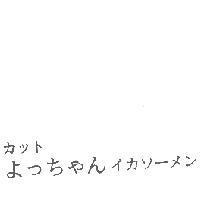 カット
よっちゃんイカソーメン